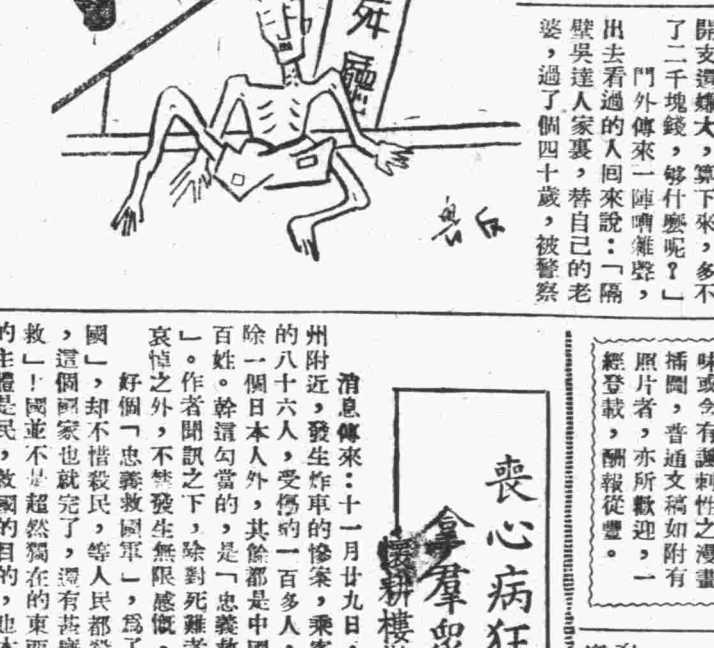 開支還嫌大，算下來，多不
了二千塊錢，够什麼呢？」
門外傳來一陣嘈雜聲，
出去看過的人回來說：「隔
壁吳達人家裏，替自己的老
婆，過了個四十歲，被警察
味或含有諷刺性之漫畫
插圖，普通文稿如附有
照片者，亦所歡迎，一
經登載，酬報從豐。
喪心病狂
拿羣眾
耕樓
消息傳來：十一月廿九日，
州附近，發生炸車的慘案，乘客
的八十六人，受傷的一百多人，
除一個日本人外，其餘都是中國
百姓。幹這勾當的，是「忠義救
」。作者聞訊之下，除對死難者
哀悼之外，不禁發生無限感慨。
好個「忠義救國軍」，爲了
國」，却不惜殺民，等人民都殺
，這個國家也就完了，還有甚麼
救」！國並不是超然獨在的東西
的主體是民，救國的目的，也